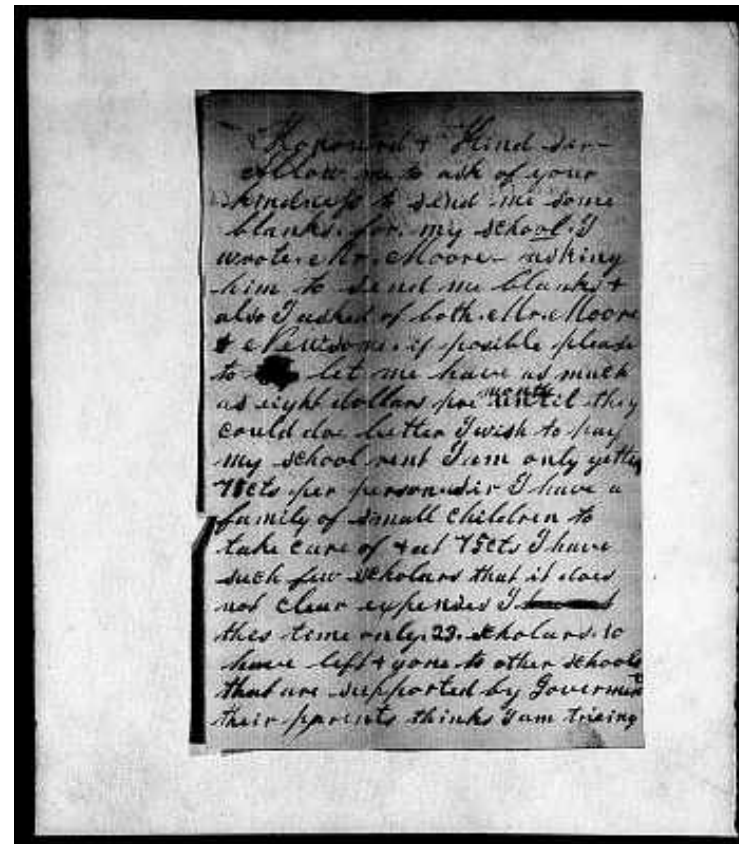 Honoured & Kind Sir—
allow me to ask of your
kindness to send me some
blanks. for. my school. I
wrote. Mr. Moore— asking
him to send me blanks &
also I asked of both. Mr. Moore
& Newsome. if posible please
to let me have as much
as eight dollars pre month until they
could doe better I wish to pay
my school rent I am only getting
75cts per person. Sir I have a
family of small children to
take care of & at 75cts I have
such few scholars that it does
not clear expenses I
this time only. 23. scholars. 10
have left & gone to other schools
that are supported by Goverment
their parents thinks I am trieing